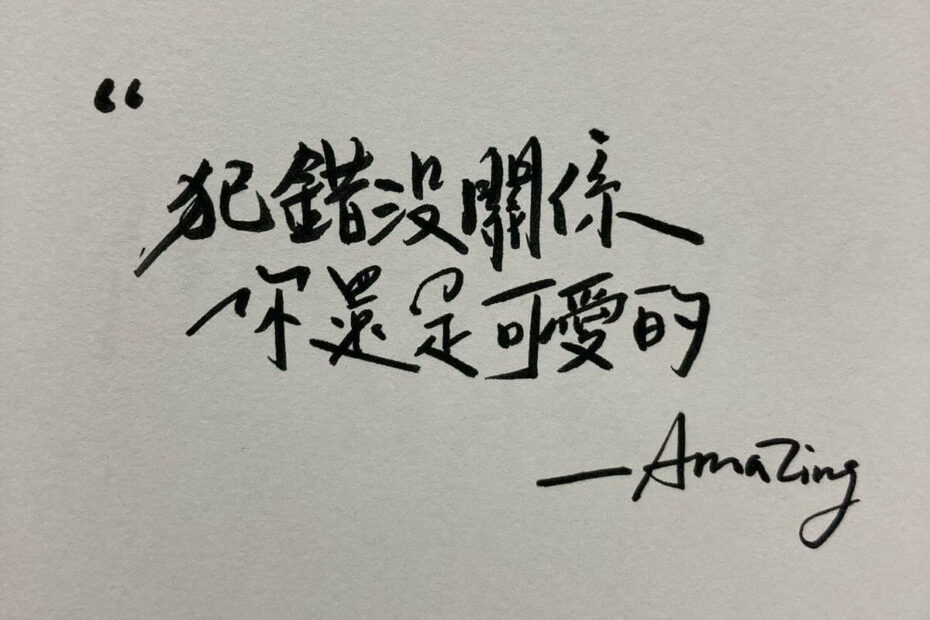 “
犯錯没關係
你還是可愛的
—Amazing